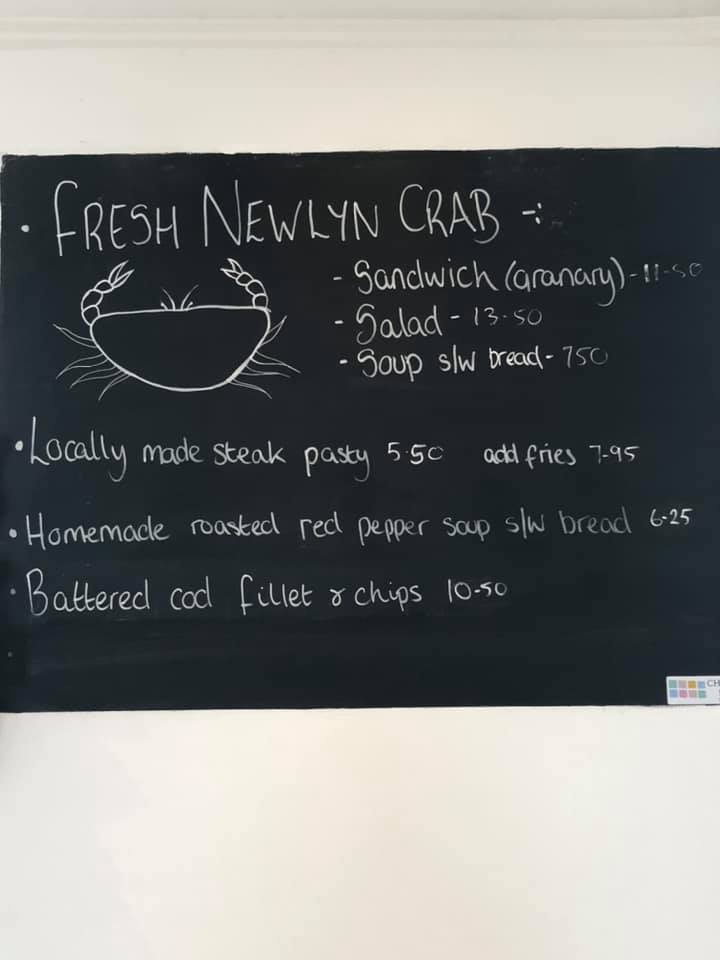 • FRESH NEWLYN CRAB -:
- Sandwich (Granary) - 11-50
- Salad - 13.50
- Soup s/w bread - 750
• Locally made steak pasty 5.50 add fries 7-95
• Homemade roasted red pepper soup s/w bread 6-25
• Battered cod fillet & chips 10-50
CH